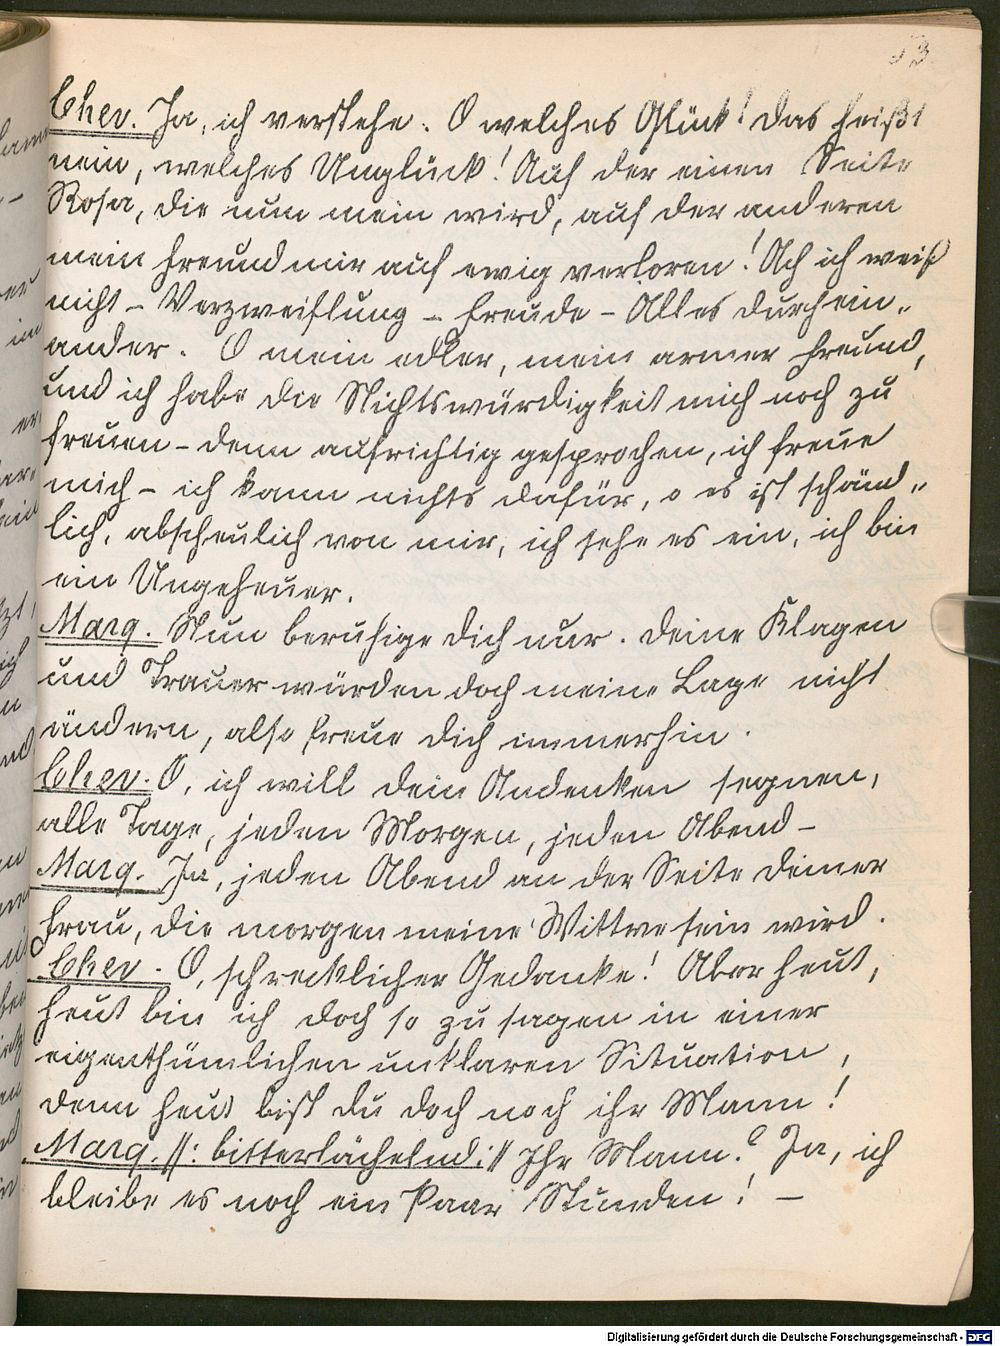 53
Chev. Ja, ich verstehe. O welches Glück! das heißt
nein, welches Unglück! Auf der einen Seite
Rosa, die nun mein wird, auf der anderen
mein Freund mir auf ewig verloren! Ach ich weiß
nicht – Verzweiflung – Freude – Alles durchein„
ander. O mein edler, mein armer Freund,
und ich habe die Nichtswürdigkeit mich noch zu
freuen – denn aufrichtig gesprochen, ich freue
mich – ich kann nichts dafür, o es ist schänd„
lich, abscheulich von mir, ich sehe es ein, ich bin
ein Ungeheuer.
Marq. Nun beruhige dich nur. Deine Klagen
und Trauer würden doch meine Lage nicht
ändern, also freue dich immerhin.
Chev. O, ich will dein Andenken segnen,
alle Tage, jeden Morgen, jeden Abend –
Marq. Ja, jeden Abend an der Seite deiner
Frau, die morgen meine Wittwe sein wird.
Chev. O, schrecklicher Gedanke! Aber heut,
heut bin ich doch so zu sagen in einer
eigenthümlichen unklaren Situation,
denn heut bist du doch noch ihr Mann!
Marq. //: bitterlächelnd :// Ihr Mann? Ja, ich
bleibe es noch ein Paar Stunden! –
Digitalisierung gefördert durch die Deutsche Forschungsgemeinschaft - DFG